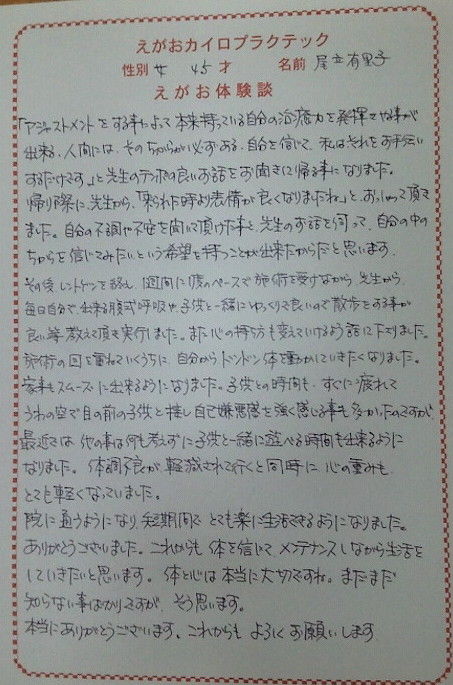 えがおカイロプラクテック
性別 女 45才 名前 尾立有里子
えがお体験談
「アジャストメントをする事によって本来持っている自分の治癒力を発揮させる事が
出来る。人間には、そのちからが必ずある。自分を信じて、私はそれをお手伝い
するだけです。」と先生のテンポの良いお話をお聞きして帰る事になりました。
帰り際に、先生から、「来られた時より表情が良くなりましたね」と、おっしゃって頂き
ました。自分の不調や不安を聞いて頂けた事と、先生のお話を伺って、自分の中の
ちからを信じてみたいという希望を持つことが出来たからだと思います。
その後レントゲンを撮り、1週間に1度のペースで施術を受けながら、先生から、
毎日自分で、出来る腹式呼吸や、子供と一緒にゆっくりで良いので散歩をする事が
良い等教えて頂き実行しました。また心の持ち方も変えていけるよう話して下さりました。
施術の回を重ねていくうちに、自分からドンドン体を動かしていきたくなりました。
家事もスムーズに出来るようになりました。子供との時間も、すぐに疲れて
うわの空で目の前の子供と接し自己嫌悪感を強く感じる事も多かったのですが
最近では、他の事は何も考えずに子供と一緒に遊べる時間も出来るように
なりました。体調不良が軽減されて行くと同時に心の重みも
とても軽くなっていました。
院に通うようになり、短期間でとても楽に生活できるようになりました。
ありがとうございました。これからも体を信じてメンテナンスしながら生活を
していきたいと思います。体と心は本当に大切ですね。まだまだ
知らない事ばかりですが、そう思います。
本当にありがとうございます。これからもよろしくお願いします